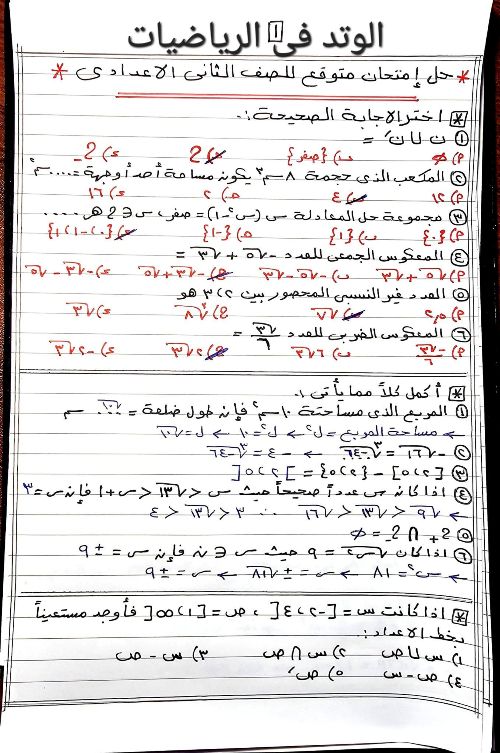 الوتد فى الرياضيات
١
* حل إمتحان متوقع للصف الثانى الاعدادى *
* اختر الاجابة الصحيحة :-
١) ن ∪ ن َ =
٢) φ ب) {صفر} ج) 2 د) 2_
٢) المكعب الذى حجمه ٨ سم٣ يكون مساحة أحد أوجهه = .... سم٢
٢) ١٢ ب) ٤ ج) ٢ د) ١٦
٣) مجموعة حل المعادلة س (س٢-١) = صفر، س ∈ 2 هى .....
٢) {٠} ب) {١} ج) {-١} د) {٠،-١،+١}
٤) المعكوس الجمعى للعدد -√٥ + √٣ =
٢) √٥ + √٣ ب) -√٥ - √٣ ج) -√٣ + √٥ د) -√٣ - √٥
٥) العدد غير النسبى المحصور بين ٢، ٣ هو
٢) ٢,٥ ب) √٧ ج) √٨ د) √٣
٦) المعكوس الضربى للعدد √٣/٦ =
٢) -√٣/٦ ب) ٦√٣ ج) ٢√٣ د) -٢√٣
* أكمل كلاً مما يأتى :-
١) المربع الذى مساحته ١٠ سم٢ فإن طول ضلعه = √١٠ سم
← مساحة المربع = ل٢ ← ل٢ = ١٠ ← ل = √١٠
٢) -√١٦ = ∛-٦٤ ← -٤ = ∛-٦٤
٣) [٢،٥] - {٢،٥} = ]٢،٥[
٤) اذا كان س عدداً صحيحاً حيث س < √١٣ < س+١ فإن س = ٣
← √٩ < √١٣ < √١٦ ∴ ٣ < √١٣ < ٤
٥) 2+ ∩ 2_ = φ
٦) اذا كان √س٢ = ٩ حيث س ∈ ن فإن س = ± ٩
← س٢ = ٨١ ← س = ± √٨١ ← س = ± ٩
* اذا كانت س = [-٢،٤[ ، ص = [١،∞[ فأوجد مستعيناً
بخط الاعداد :
١) س ∪ ص ٢) س ∩ ص ٣) س - ص
٤) ص - س ٥) ص َ